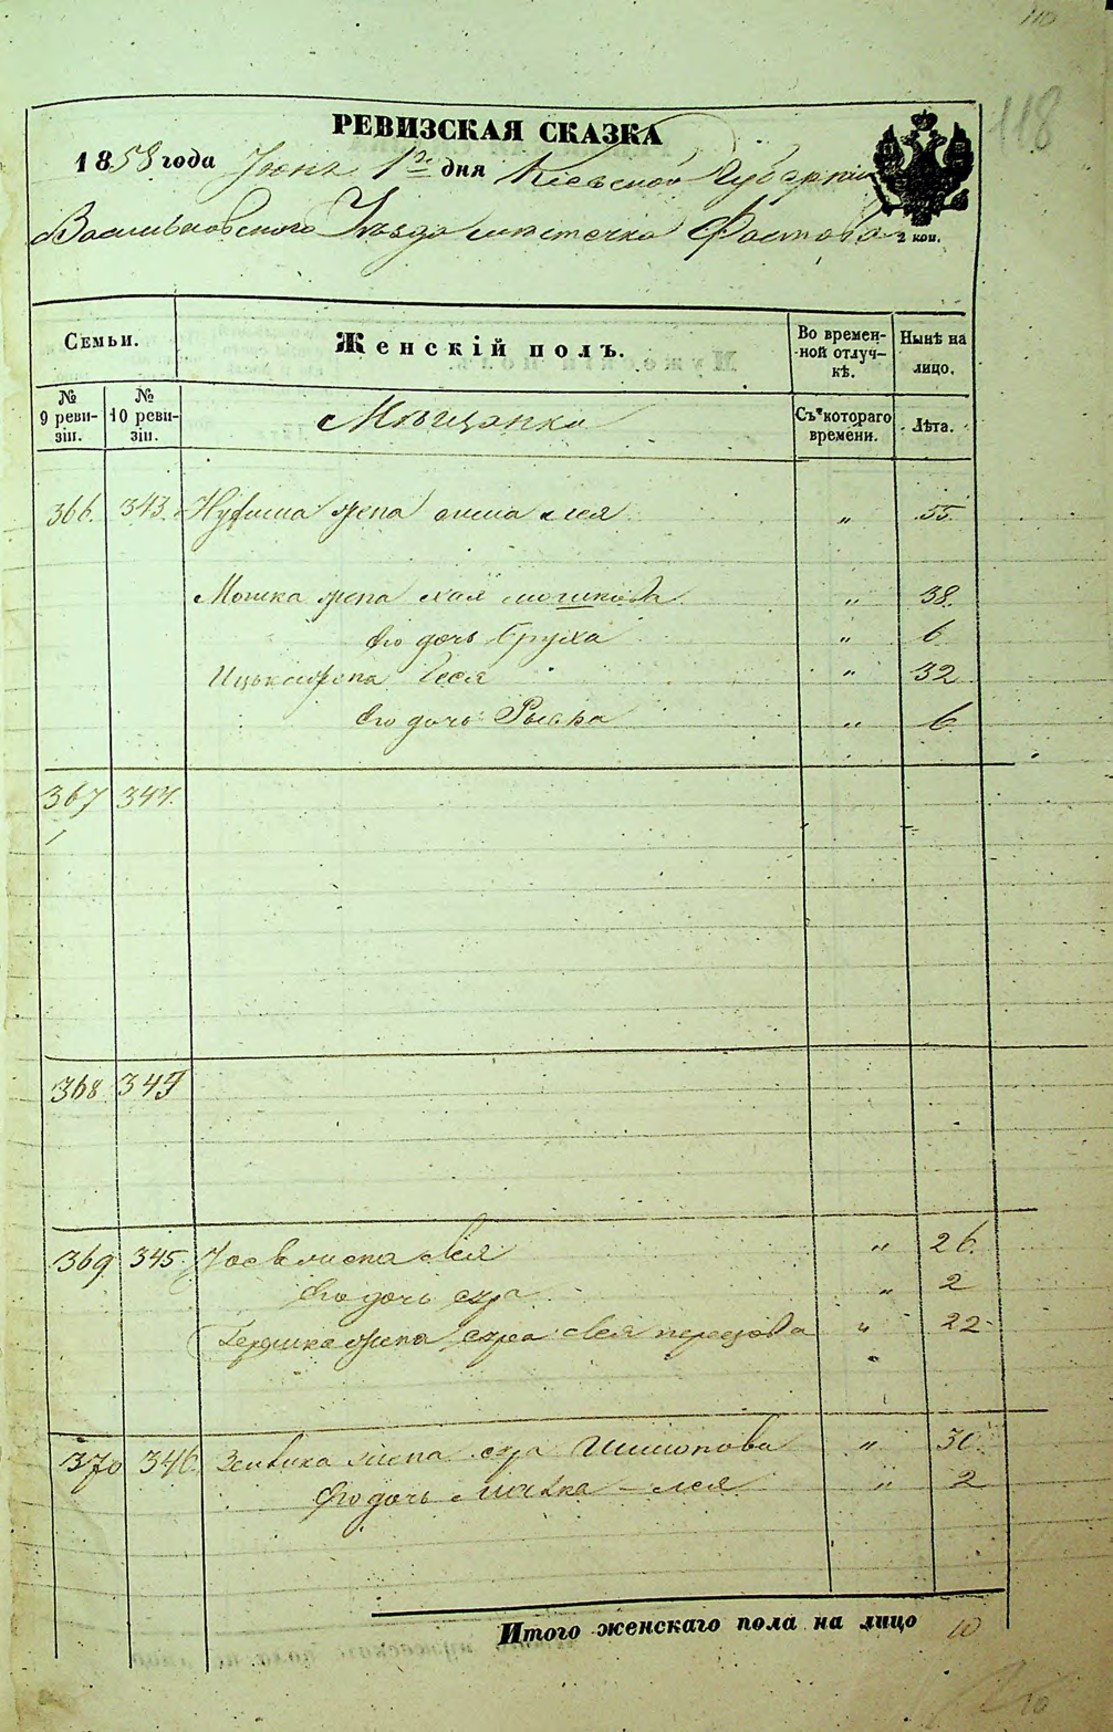 110
118
РЕВИЗСКАЯ СКАЗКА
1858 года Июня 1го дня Кіевской Губерніи
Васильковскаго Уѣзда мѣстечка Фастова
2 коп.
Семьи.
Женскій полъ.
Во времен-
ной отлуч-
кѣ.
Нынѣ на
лицо.
№
9 реви-
зіи.
№
10 реви-
зіи.
Мѣщанка
Съ котораго
времени.
Лѣта.
366. 343. жена лея " 55
Мошка жена хая мошкова " 38.
Его дочь Бруха " 6
Ицька жена " 32
Его дочь Рыська " 6
367 344.
368 349
369 345. Іосв жена Лея " 26.
Его дочь сура " 2
Гершка жена сура Лея " 22
370 346. жена сура Шимонова " 30.
Его дочь лея " 2
Итого женскаго пола на лицо 10
10